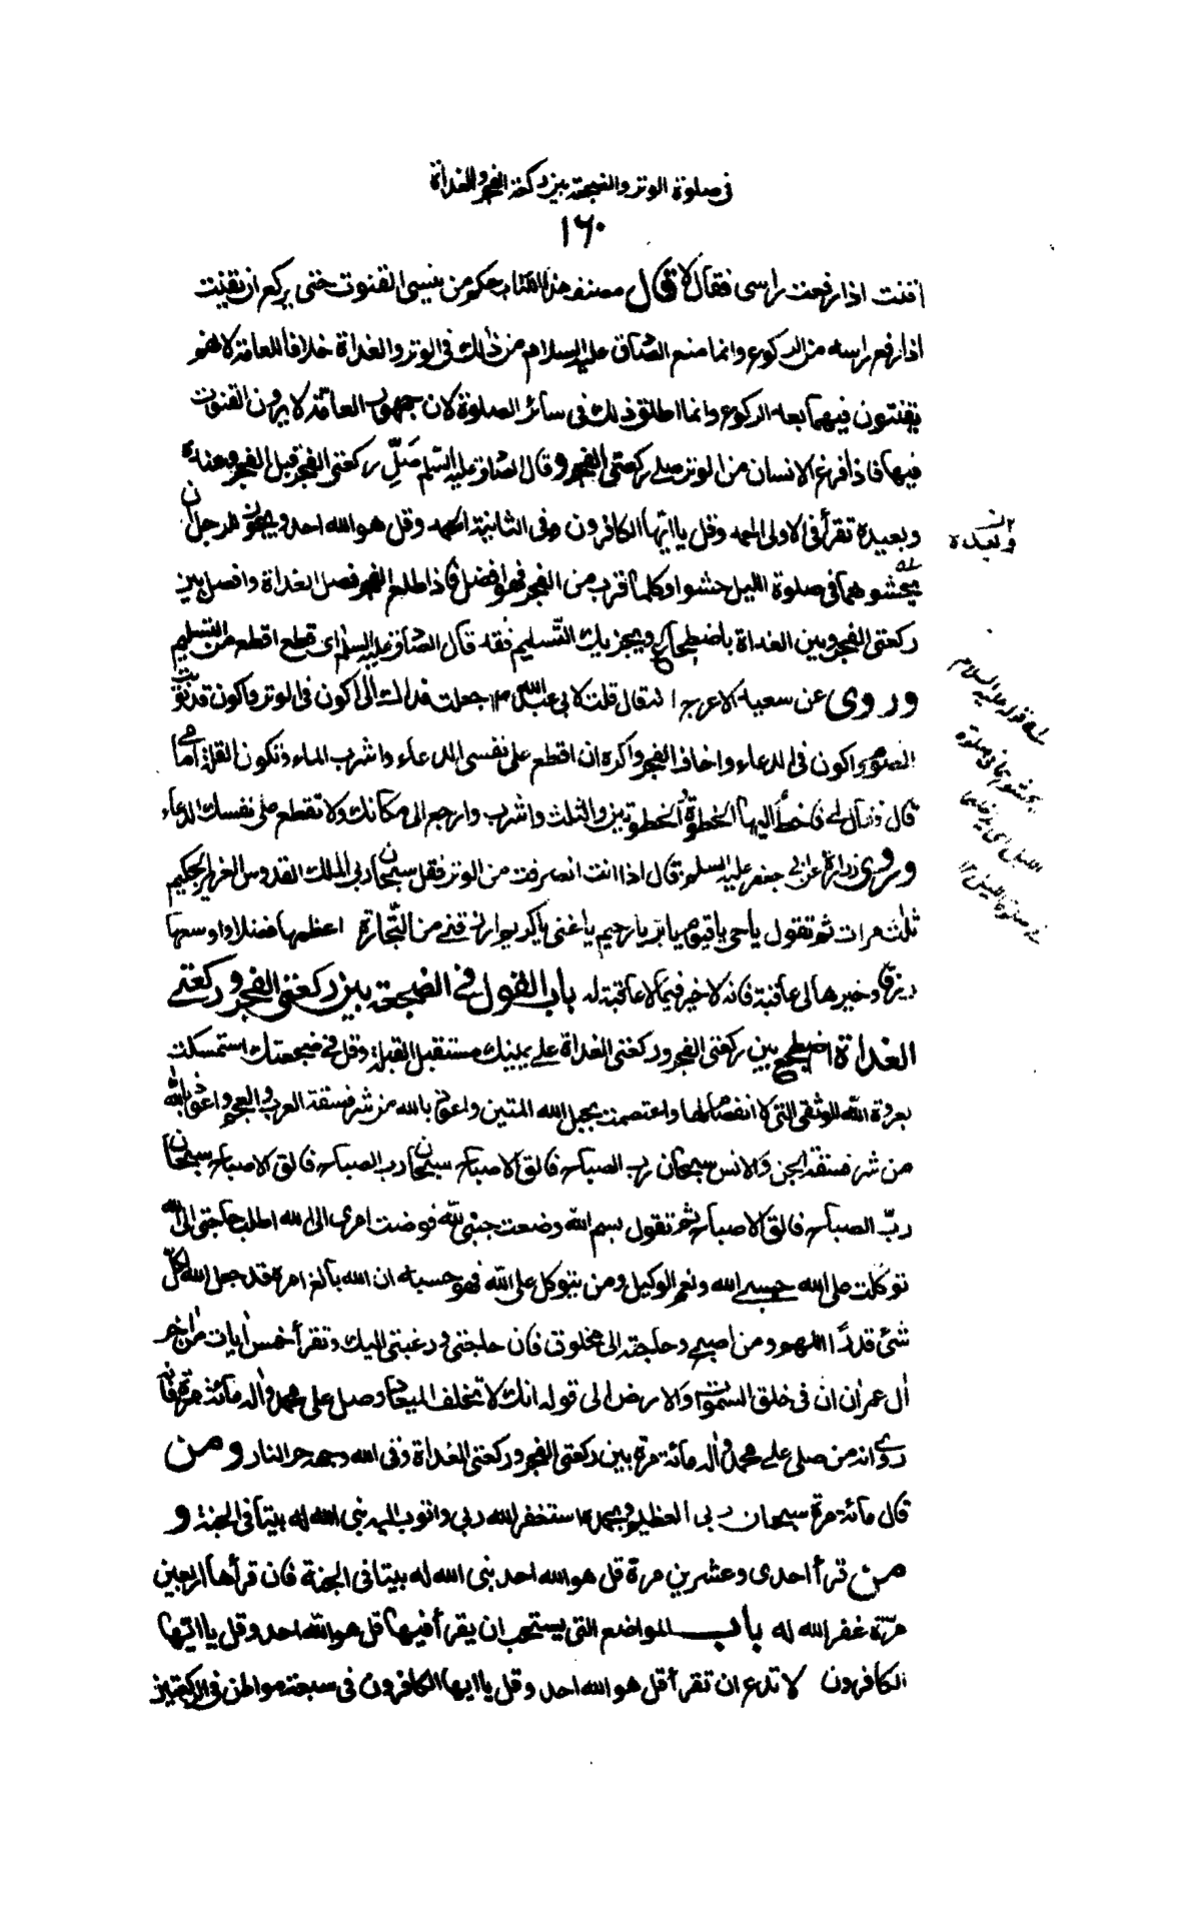 في صلوة الوتر والضجعة بين ركعتي الفجر والغداة
١٦٠
اقنت اذا رفعت راسي فقال لا قال مصنف هذا الكتاب حكم من ينسى القنوت حتى يركع ان يقنت
اذا رفع راسه من الركوع وانما منع الصادق عليه السلام من ذلك في الوتر والغداة خلافا للعامة لانهم
يقنتون فيهما بعد الركوع وانما اطلق ذلك في سائر الصلوة لان جمهور العامة لا يرون القنوت
فيها فاذا فرغ الانسان من الوتر صلى ركعتي الفجر وقال الصادق عليه السلم صَلِّ ركعتي الفجر قبل الفجر وعنده
وبعيده تقرأ في الاولى الحمد وقل يا ايها الكافرون وفي الثانية الحمد وقل هو الله احد ويجوز للرجل ان
يحشوهما في صلوة الليل حشوا وكلما قرب من الفجر فهو افضل فاذا طلع الفجر فصل الغداة وافصل بين
ركعتي الفجر وبين الغداة باضطجاع ويجزيك التسليم فقد قال الصادق عليه السلم اي قطع اقطع من التسليم
وروى عن سعيد الاعرج انه قال قلت لابي عبد الله ع جعلت فداك اني اكون في الوتر واكون قد نويت
الصوم واكون في الدعاء واخاف الفجر واكره ان اقطع على نفسي الدعاء واشرب الماء وتكون القلة امامي
قال فقال لي فاخط اليها الخطوة والخطوتين والثلث واشرب وارجع الى مكانك ولا تقطع على نفسك الدعاء
وروى زرارة عن ابي جعفر عليه السلم قال اذا انت انصرفت من الوتر فقل سبحان ربي الملك القدوس العزيز الحكيم
ثلث مرات ثم تقول يا حي يا قيوم يا بر يا رحيم يا غني يا كريم ارزقني من التجارة اعظمها فضلا واوسعها
رزقا وخيرها لي عاقبة فانه لا خير فيما لا عاقبة له باب القول في الضجعة بين ركعتي الفجر وركعتي
الغداة اضطجع بين ركعتي الفجر وركعتي الغداة على يمينك مستقبل القبلة وقل في ضجعتك استمسكت
بعروة الله الوثقى التي لا انفصام لها واعتصمت بحبل الله المتين واعوذ بالله من شر فسقة العرب والعجم واعوذ بالله
من شر فسقة الجن والانس سبحان رب الصباح فالق الاصباح سبحان رب الصباح فالق الاصباح سبحان
ربّ الصباح فالق الاصباح ثم تقول بسم الله وضعت جنبي لله فوضت امري الى الله اطلب حاجتي الى الله
توكلت على الله حسبي الله ونعم الوكيل ومن يتوكل على الله فهو حسبه ان الله بالغ امره قد جعل الله لكل
شئ قدرًا اللهم ومن اصبح وحاجته الى مخلوق فان حاجتي ورغبتي اليك وتقرأ خمس ايات من اخر
ال عمران ان في خلق السموات والارض الى قوله انك لا تخلف الميعاد وصل على محمد واله مائة مرة فانه
روى انه من صلى على محمد واله مائة مرة بين ركعتي الفجر وركعتي الغداة وقى الله وجهه حر النار ومن
قال مائة مرة سبحان ربي العظيم وبحمده استغفر الله ربي واتوب اليه بنى الله له بيتا في الجنة و
من قرأ احدى وعشرين مرة قل هو الله احد بنى الله له بيتا في الجنة فان قرأها اربعين
مرّة غفر الله له باب المواضع التي يستحب ان يقرأ فيها قل هو الله احد وقل يا ايها
الكافرون لا تدع ان تقرأ قل هو الله احد وقل يا ايها الكافرون في سبعة مواطن في الركعتين
وبعده ن
قوله عليه السلام
يحشوهما في صلوة
الليل اي يدخلهما
في صلوة الليل ١٢